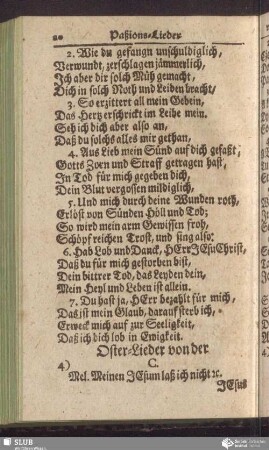 20 Paßions-Lieder.
2. Wie du gefangn unschuldiglich,
Verwundt, zerschlagen jämmerlich,
Ich aber dir solch Müh gemacht,
Dich in solch Noth und Leiden bracht,
3. So erzittert all mein Gebein,
Das Hertz erschrickt im Leibe mein.
Seh ich dich aber also an,
Daß du solchs alles mir gethan,
4. Aus Lieb mein Sünd auf dich gefaßt,
Gotts Zorn und Straff getragen hast,
In Tod für mich gegeben dich,
Dein Blut vergossen mildiglich,
5. Und mich durch deine Wunden roth,
Erlöst von Sünden Höll und Tod;
So wird mein arm Gewissen froh,
Schöpf reichen Trost, und sing also:
6. Hab Lob und Danck, HErr JEsu Christ,
Daß du für mich gestorben bist,
Dein bittrer Tod, das Leyden dein,
Mein Heyl und Leben ist allein.
7. Du hast ja, HErr bezahlt für mich,
Das ist mein Glaub, darauf sterb ich,
Erweck mich auf zur Seeligkeit,
Daß ich dich lob in Ewigkeit.
Oster-Lieder von der
4) C.
Mel. Meinen JEsum laß ich nicht ꝛc.
JEsus
SLUB